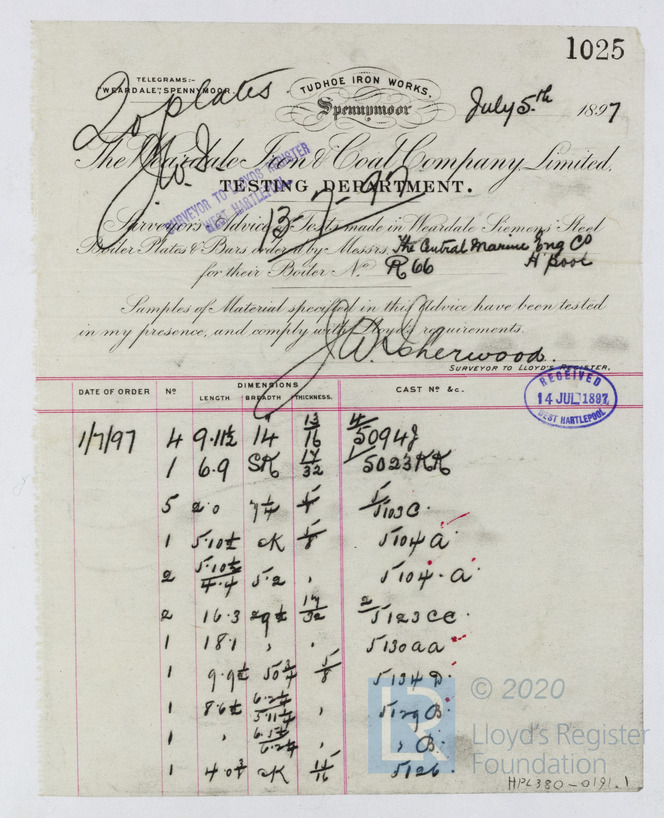 1025
TELEGRAMS:-
"WEARDALE", SPENNYMOOR.
20 plates
J.W.S.
TUDHOE IRON WORKS,
Spennymoor
July 5th 1897
The Weardale Iron & Coal Company Limited,
TESTING DEPARTMENT.
SURVEYOR TO LLOYDS REGISTER
WEST HARTLEPOOL
13-7-97
Surveyors Advice of Tests made in Weardale Siemens Steel
Boiler Plates & Bars ordered by Messrs. The Central Marine Eng Co
for their Boiler No. R 66 H'pool
Samples of Material specified in this Advice have been tested
in my presence, and comply with Lloyd's requirements.
J.W. Sherwood.
SURVEYOR TO LLOYD'S REGISTER.
RECEIVED
14 JUL 1897
WEST HARTLEPOOL
DATE OF ORDER No. DIMENSIONS CAST No. &c.
LENGTH BREADTH THICKNESS.
1/7/97 4 9.11½ 14 13/16 4/5094J
1 6.9 SK 17/32 1/5023KK
5 2.0 5/5103C
1 5.10½ CK 5/8 5104A
2 5.10½/4.4 5.2 " 5104.A
2 16.3 29½ 17/32 2/5123CC
1 18.1 " " 5130aa
1 9.9½ 50¾ 5/8 5134D
1 8.6½ " 5129B
1 " " " B
1 4.0¾ CK 5126
© 2020
Lloyd's Register
Foundation
HPL380-0191.1